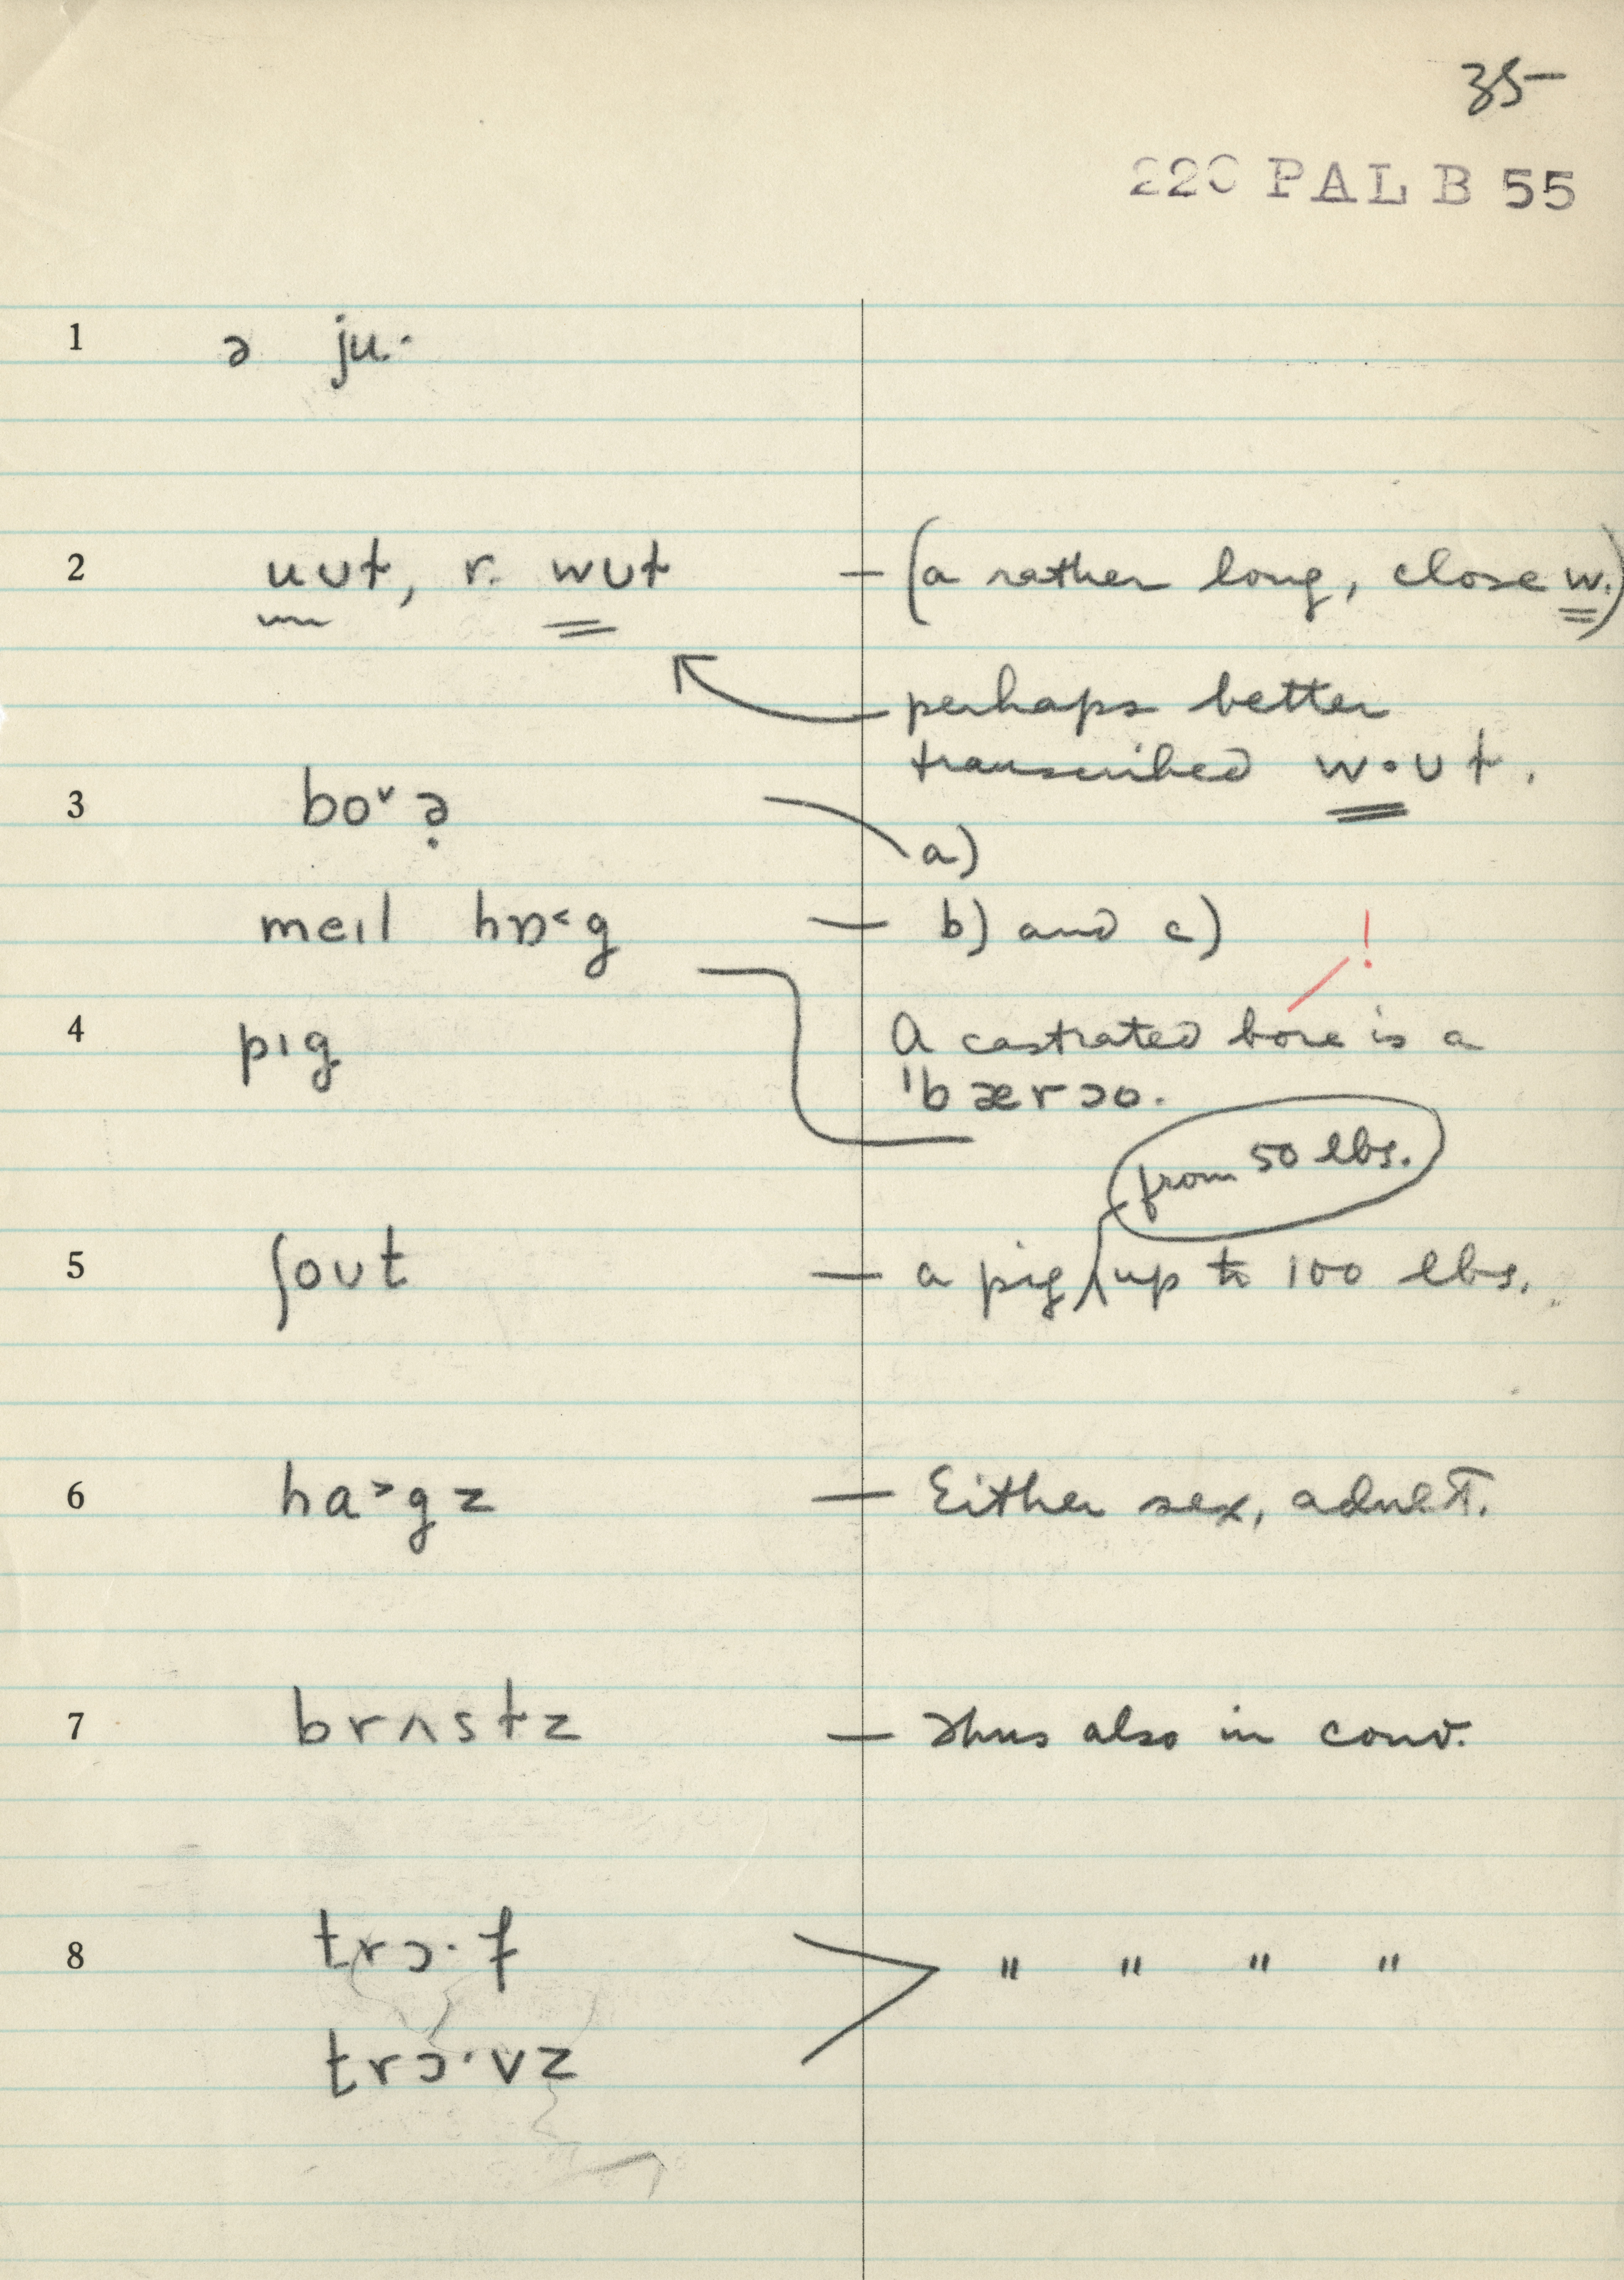 35-
220 PAL B 55
1 ə ju·
2 uʊt, r. wʊt — (a rather long, close w.)
perhaps better
transcribed w·ʊt.
3 bo˅ə̣ a)
meɪl hɒ˂g — b) and c)
!
4 pɪg A castrated bore is a
ˈbærəo.
from 50 lbs.
5 ʃoʊt — a pig up to 100 lbs.
6 ha˃gz — Either sex, adult.
7 brʌstz — Thus also in conv.
8 trɔ·f " " " "
trɔ·vz